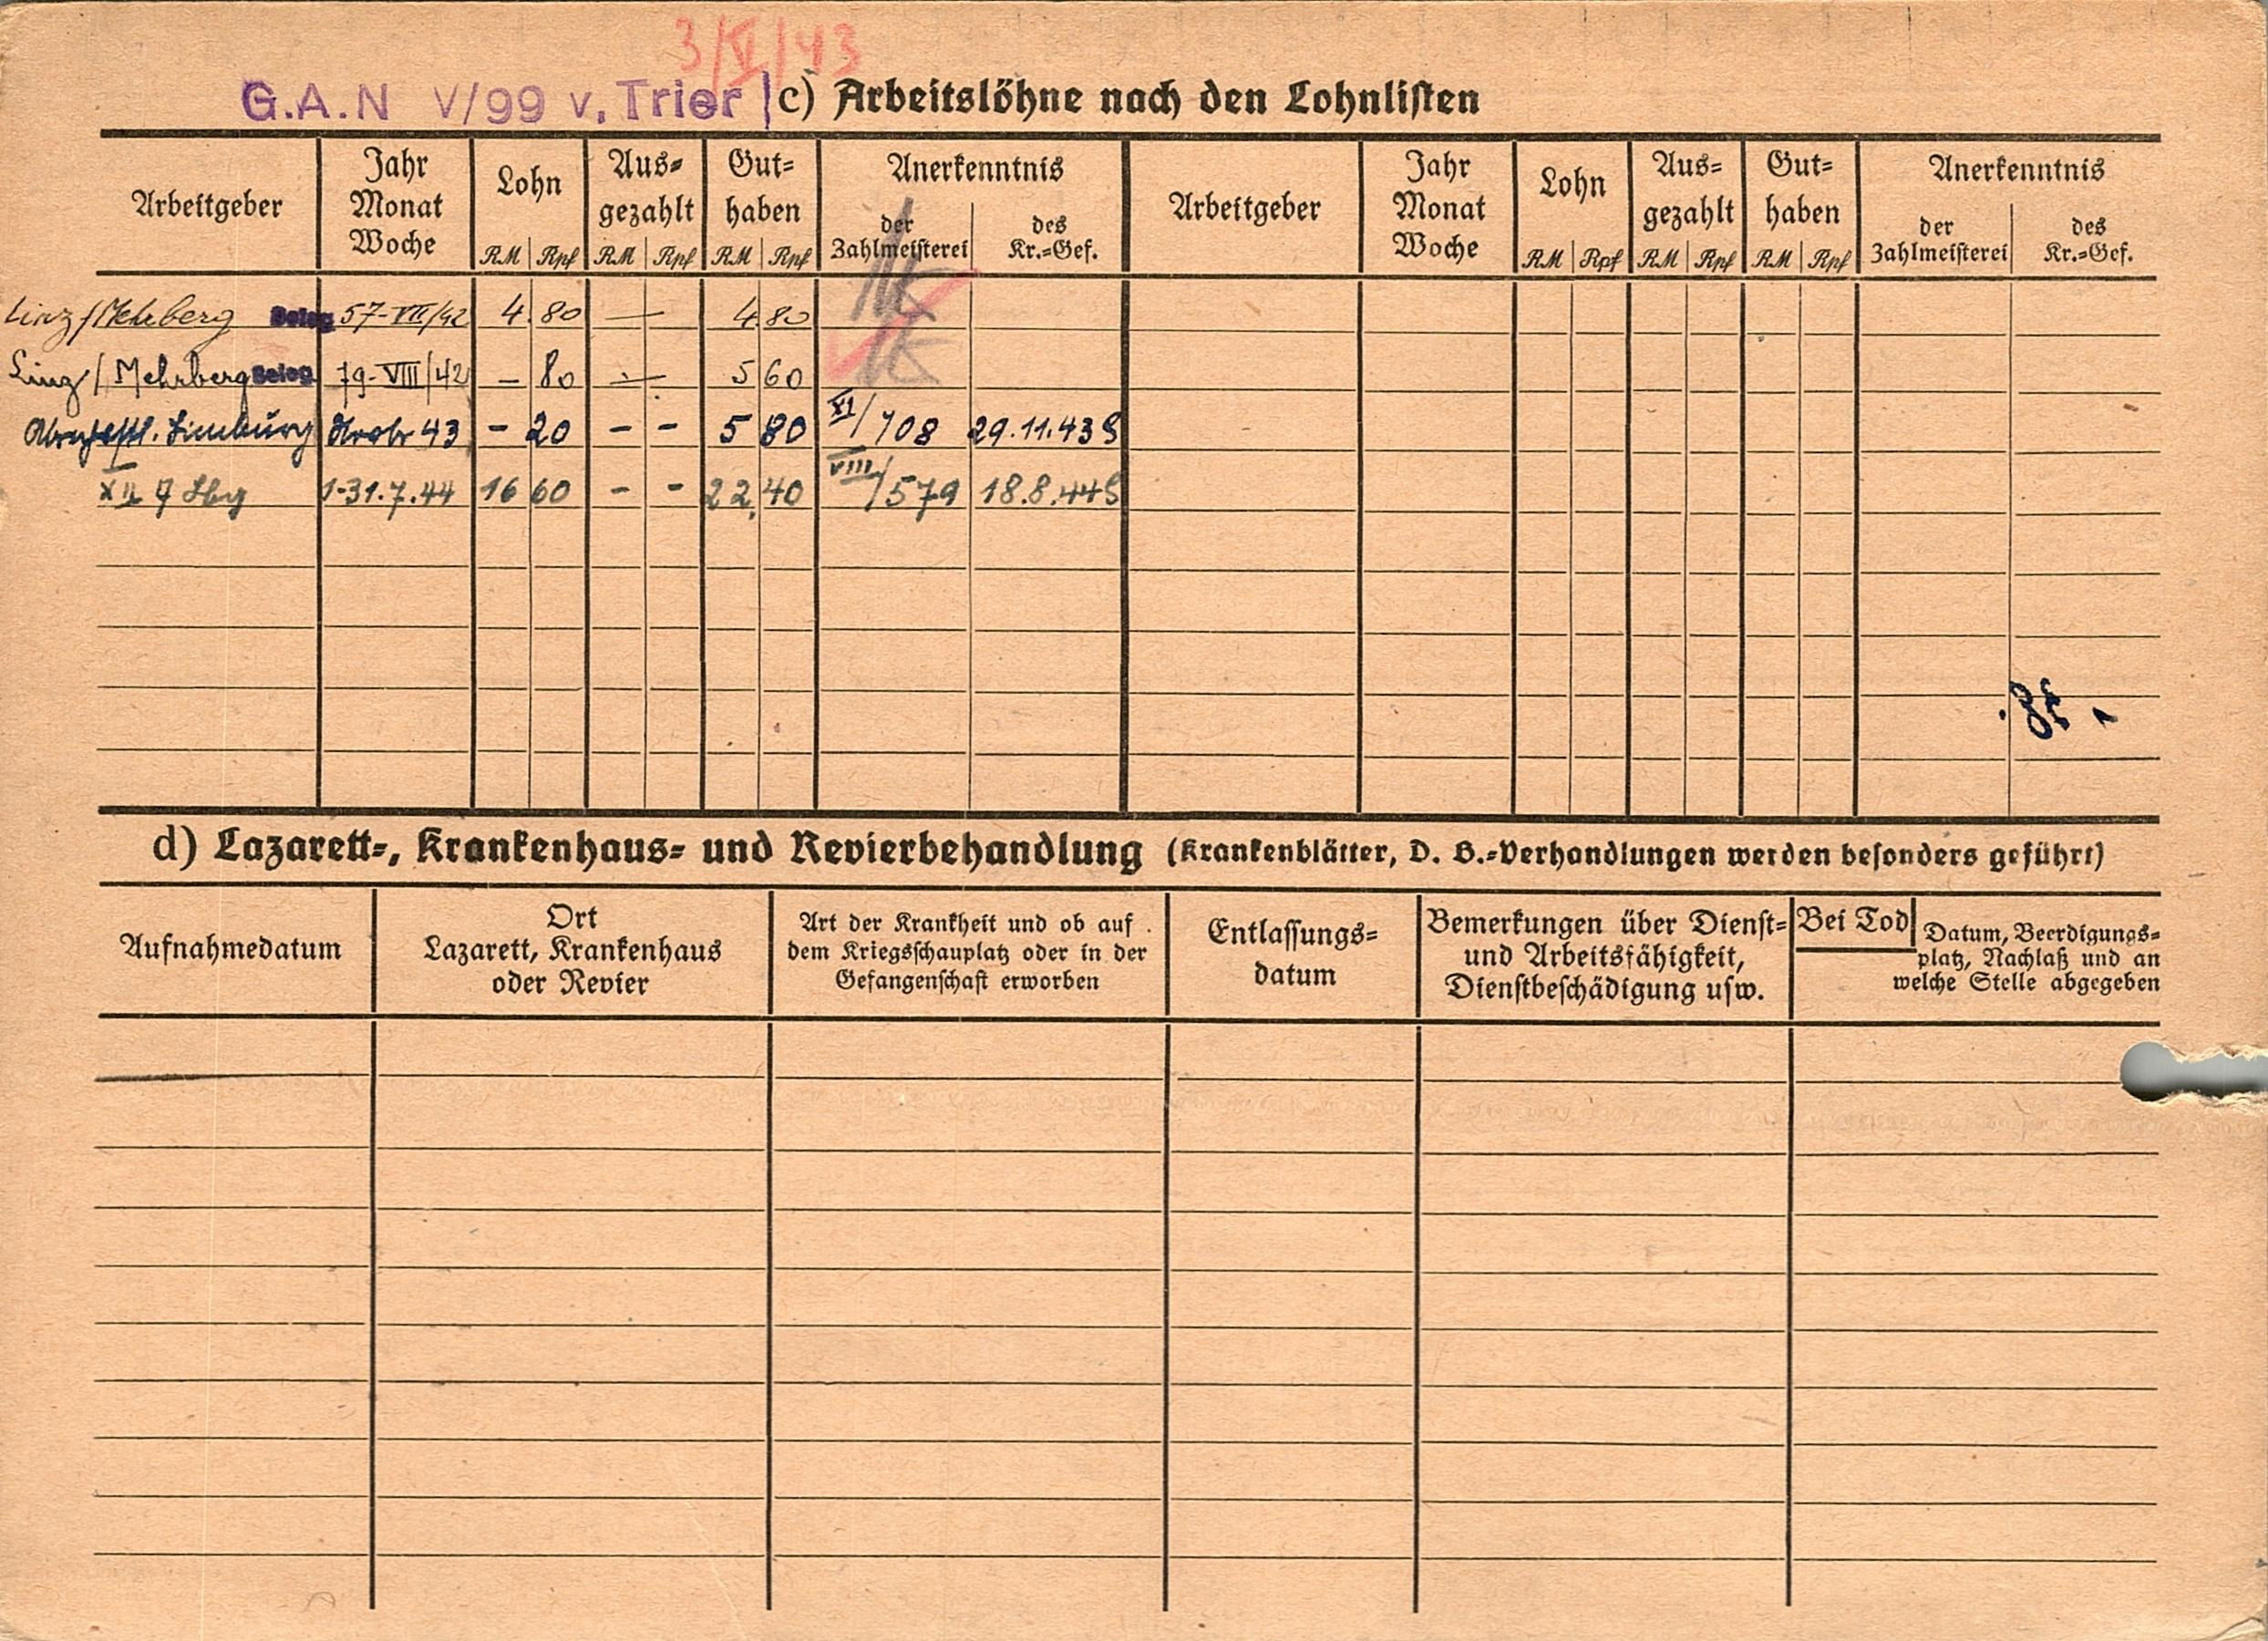 3/V/43
G.A.N V/99 v. Trier
c) Arbeitslöhne nach den Lohnlisten
Arbeitgeber
Jahr
Monat
Woche
Lohn
RM Rpf
Aus-
gezahlt
RM Rpf
Gut-
haben
RM Rpf
Anerkenntnis
der
Zahlmeisterei
des
Kr.-Gef.
Arbeitgeber
Jahr
Monat
Woche
Lohn
RM Rpf
Aus-
gezahlt
RM Rpf
Gut-
haben
RM Rpf
Anerkenntnis
der
Zahlmeisterei
des
Kr.-Gef.
Linz/Mehrberg Beleg 57-VII/42 4 80 — 4 80
Linz/Mehrberg Beleg 79-VIII/42 — 80 — 5 60
Limburg 43 - 20 - - 5 80 XI/708 29.11.43 S
1-31.7.44 16 60 - - 22,40 VIII/579 18.8.44 S
d) Lazarett-, Krankenhaus- und Revierbehandlung (Krankenblätter, D. B.-Verhandlungen werden besonders geführt)
Aufnahmedatum
Ort
Lazarett, Krankenhaus
oder Revier
Art der Krankheit und ob auf
dem Kriegsschauplatz oder in der
Gefangenschaft erworben
Entlassungs-
datum
Bemerkungen über Dienst-
und Arbeitsfähigkeit,
Dienstbeschädigung usw.
Bei Tod
Datum, Beerdigungs-
platz, Nachlaß und an
welche Stelle abgegeben